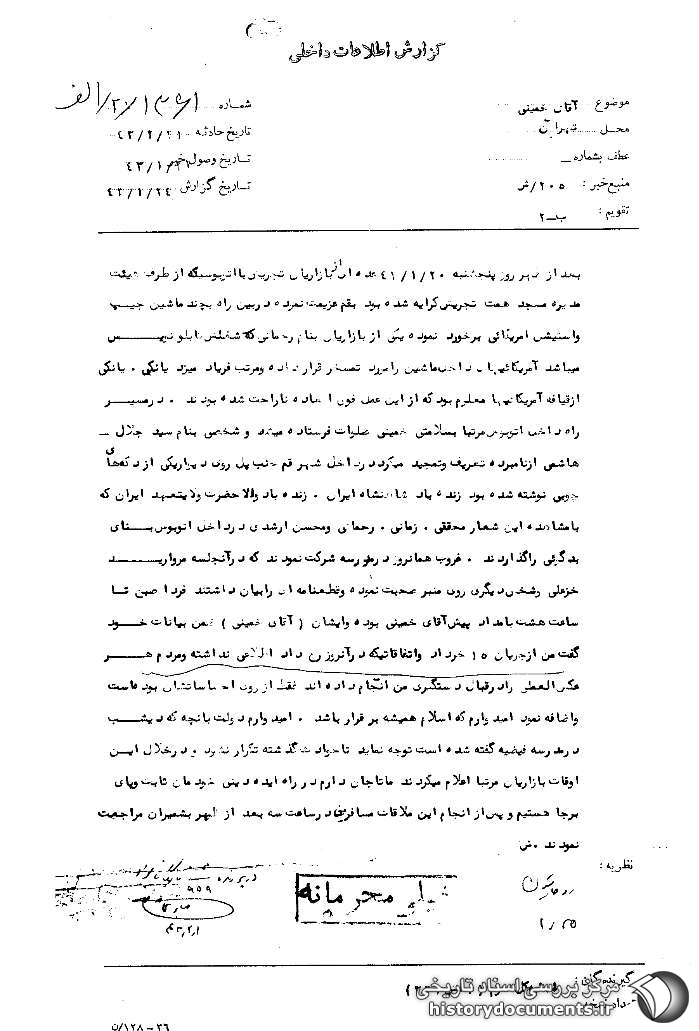 گزارش اطلاعات داخلی
موضوع آقای خمینی
شماره ۲۰/۱۳۶۱/الف
محل تهران
تاریخ حادثه
عطف بشماره
تاریخ وصول خبر
منبع خبر : ۲۰۵/ش
تاریخ گزارش
تقویم : ب-۲
بعد از ظهر روز پنجشنبه ۴۱/۱/۲۰ عده ای از بازاریان تجریش با اتوبوسیکه از طرف هیئت
مدیره مسجد همت تجریش کرایه شده بود بقم عزیمت نموده در بین راه بچند ماشین جیپ
واستیشن امریکائی برخورد نموده یکی از بازاریان بنام رحمانی که شغلش تابلو نویس
میباشد آمریکائیهای داخل ماشین را مورد تمسخر قرار داده ومرتب فریاد میزد یانکی ، یانکی
از قیافه آمریکائیها معلوم بود که از این عمل فوق العاده ناراحت شده بودند . در مسیر
راه داخل اتوبوس مرتبا بسلامتی خمینی صلوات فرستاده میشد و شخصی بنام سید جلال
هاشمی از نامبرده تعریف وتمجید میکرد در داخل شهر قم جنب پل روی دیوار یکی از دکه های
چوبی نوشته شده بود زنده باد شاهنشاه ایران . زنده باد والاحضرت ولایتعهد ایران که
با مشاهده این شعار محققی . زمانی . رحمانی ومحسن ارشدی در داخل اتوبوس بنای
بدگوئی را گذاردند . غروب همانروز در مدرسه شرکت نمودند که در آنجلسه مروارید
خزعلی وشخص دیگری روی منبر صحبت نموده وقطعنامه ای را بیان داشتند فردا صبح تا
ساعت هشت بامداد پیش آقای خمینی بوده وایشان ( آقای خمینی ) ضمن بیانات خود
گفت من از جریان ۱۵ خرداد واتفاقاتیکه در آنروز رخ داد اطلاعی نداشته ومردم هر
عکس العملی را در قبال دستگیری من انجام داده اند فقط از روی احساساتشان بوده است
واضافه نمود امیدوارم که اسلام همیشه برقرار باشد . امیدوارم دولت بآنچه که دیشب
در مدرسه فیضیه گفته شده است توجه نماید تا حوادث گذشته تکرار نشود و در خلال این
اوقات بازاریان مرتبا اعلام میکردند ما تا جان داریم در راه ایده دینی خودمان ثابت وپای
برجا هستیم و پس از انجام این ملاقات مسافرین در ساعت سه بعد از ظهر بشمیران مراجعت
نمودند .ش
نظریه :
خیلی محرمانه
۹۵۹
گیرندگان
مرکز بررسی اسناد تاریخی
historydocuments.ir
۳۶ - ۱۲۸/ن